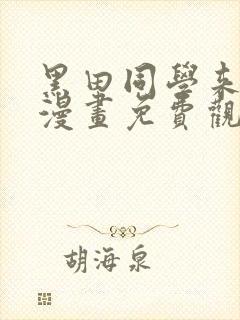 黑田同學來
漫畫免費觀
胡海泉